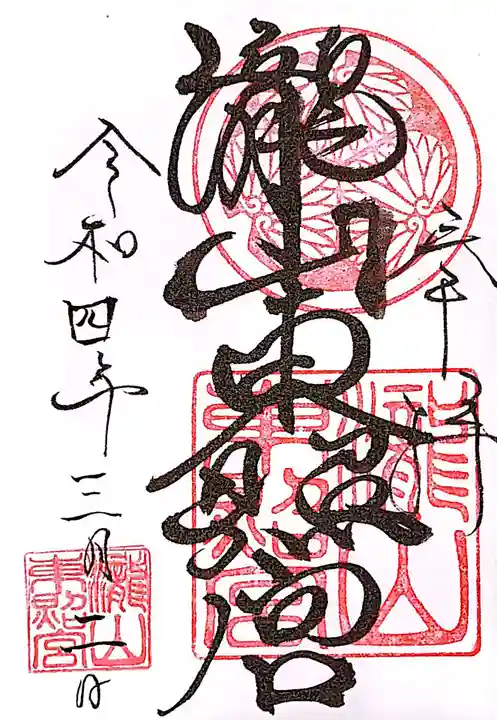 奉拝
瀧山東照宮
令和四年三月二日
瀧山東照宮
瀧山東照宮